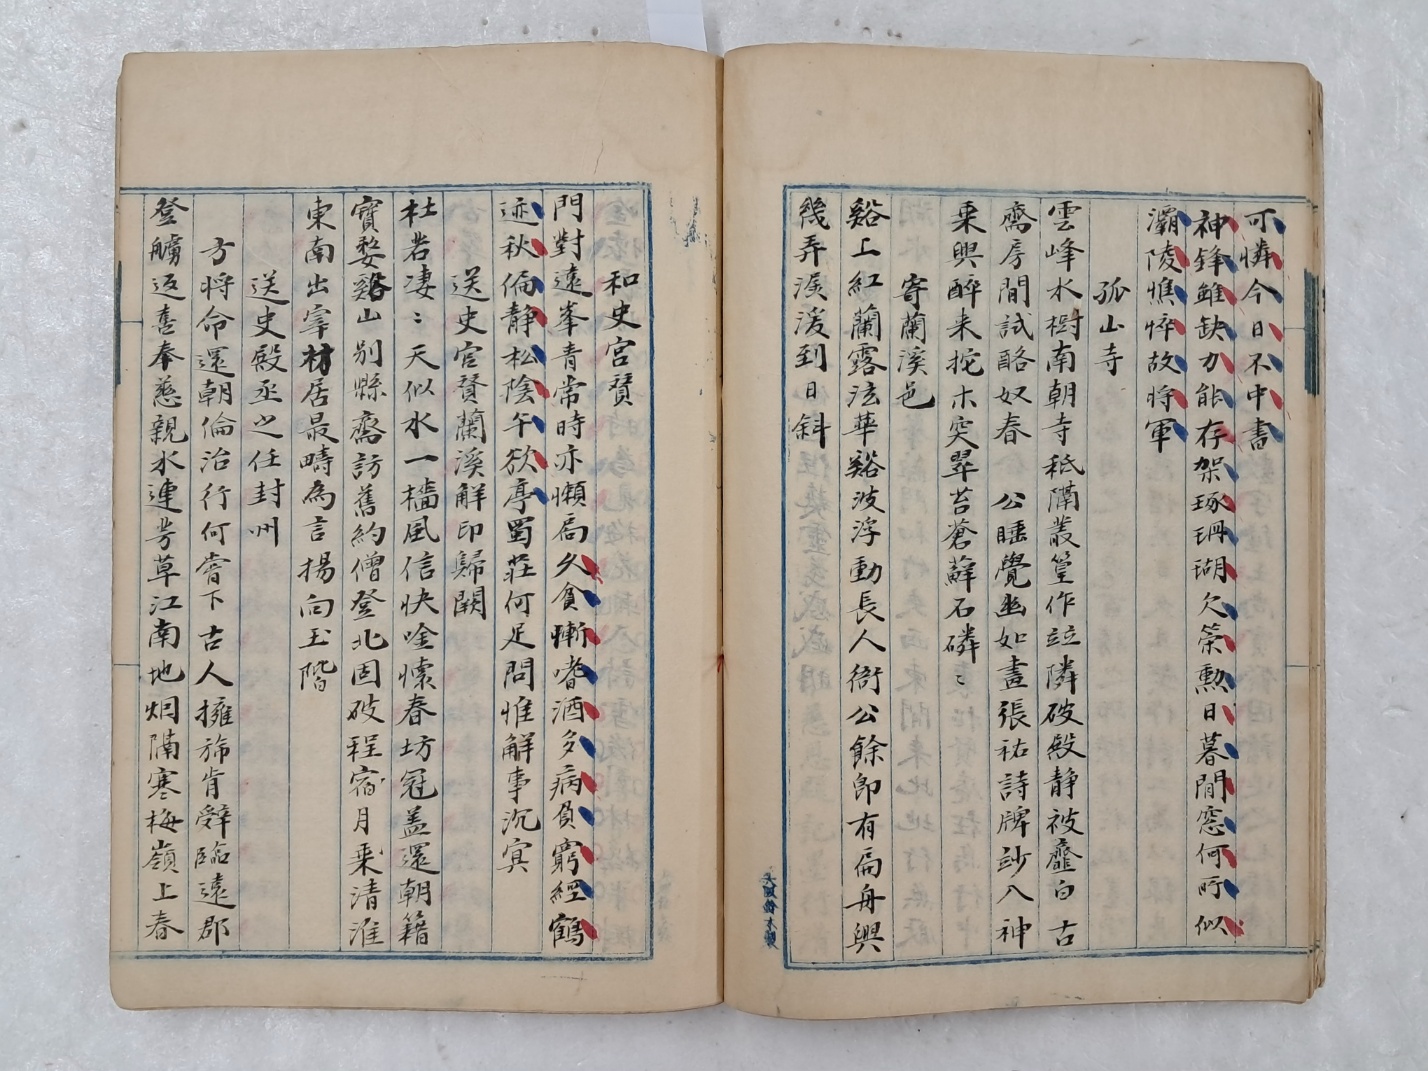 可憐今日不中書
神鋒雖缺力能存架琢珊瑚欠策勲日暮閒窓何所似
灞陵憔悴故將軍
孤山寺
雲峰水樹南朝寺秖隔叢篁作竝隣破殿静披虀臼古
齋房閒試酪奴春 公睡覺幽如畫張祐詩牌妙入神
乘興醉来挖木突翠苔蒼蘚石磷〻
寄蘭溪邑
谿上紅蘭露泫華谿波浮動長人衙公餘即有扁舟興
幾弄潺湲到日斜
大阪 木製
和史宮贊
門對遠峯青常時亦懶扃久貪慚嗜酒多病負窮經鶴
迹秋偏静松陰午欲亭蜀莊何足問惟解事沉冥
送史宮贊蘭溪解印歸闕
杜若凄〻天似水一檣風信快唫懷春坊冠盖還朝籍
寳婺谿山別縣齋訪舊約僧登北固破程宿月乘清淮
東南出宰材居最疇為言揚向玉階
送史殿丞之任封州
方將命還朝倫治行何嘗下古人擁斾肯辤臨遠郡
登艫返喜奉慈親水連芳草江南地烟隔寒梅嶺上春